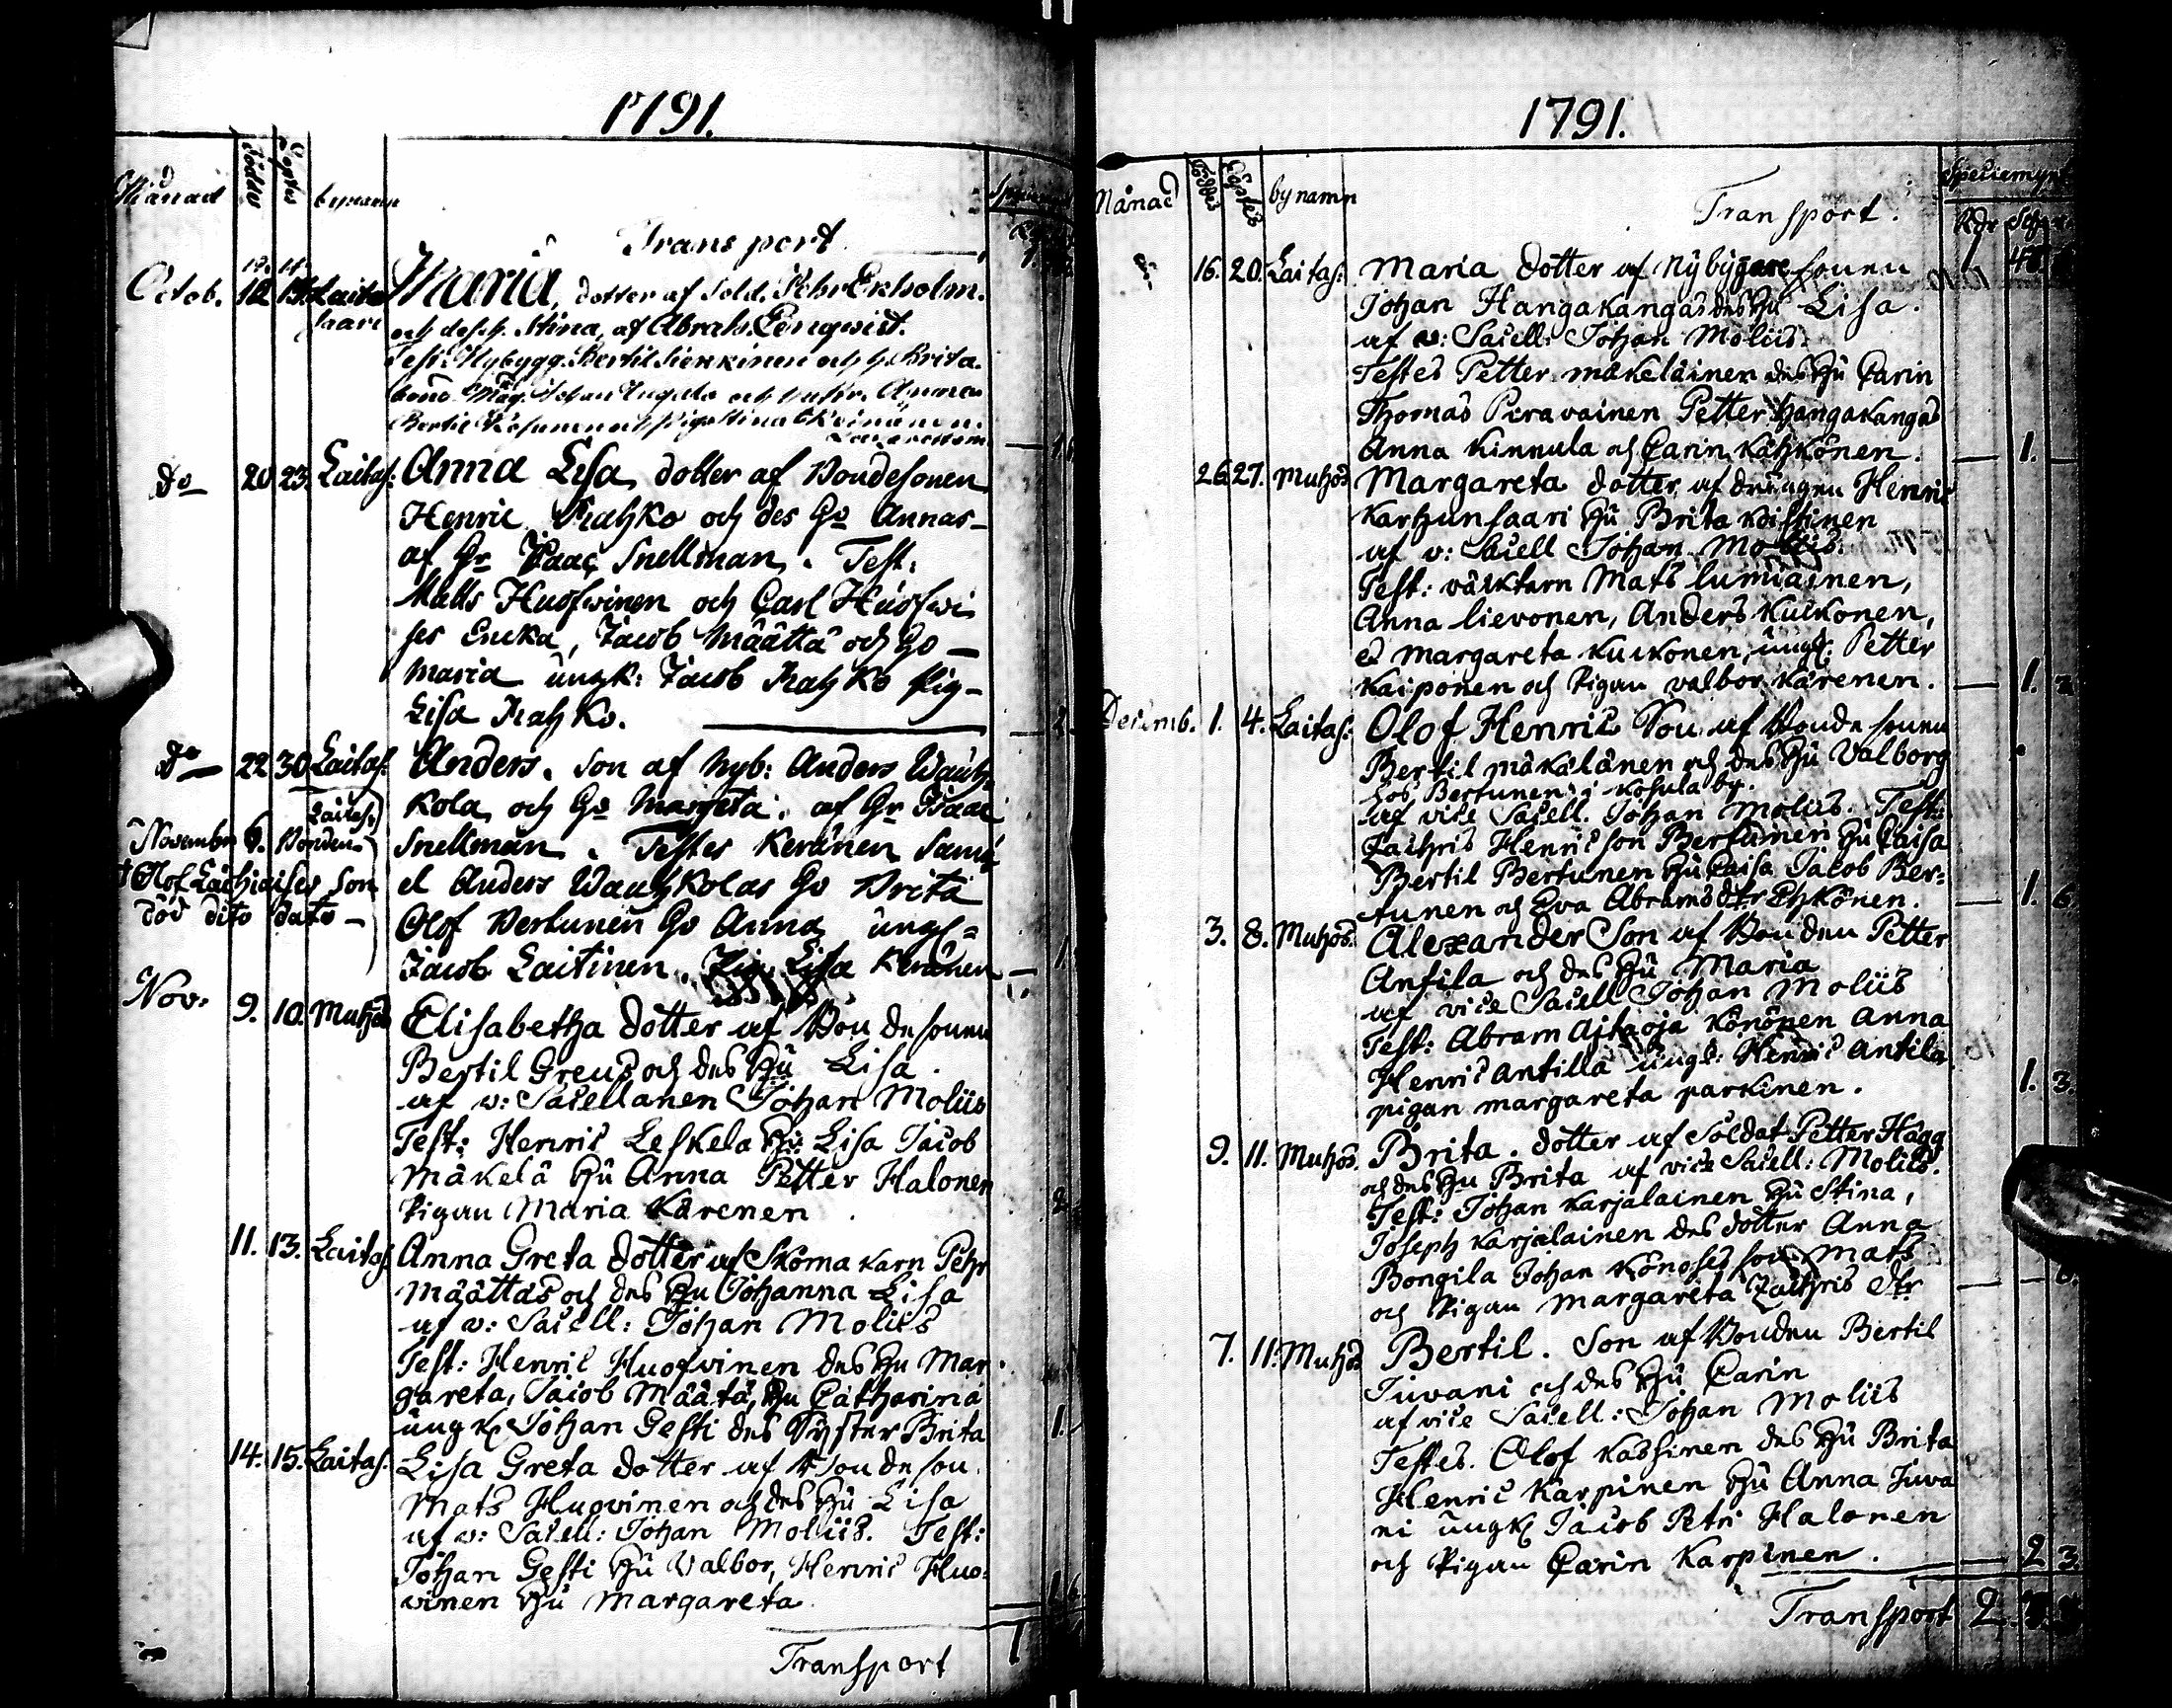 1791.
Månad Födde Döptes bynamn
Transport
Octob. 12 Laita
saari
Maria, dotter af Sold. Pehr Ekholm.
och des h. Stina, af Abrah. Lengwist.
Test: Nybygg. Bertil Sierkinen och h. Brita.
do 20 23. Laitas: Anna Lisa, dotter af Bondesonen
Henric Kahko och des Hu Annas
af Hr Isaac Snellman. Test:
Matts Huofwinen och Carl Huofwi
ses Encka, Jacob Määttä och Hu
Maria ungk: Jacob Kahko Pig
Lisa Kahko.
do 22 30 Laitas. Anders. Son af Nyb: Anders Wauh
kola och Hu Margeta. af Hr Isaac
Snellman. Testes Keränen Samu
el Anders Wauhkolas Hu Brita
Olof Bertunen Hu Anna, ungk
Jacob Laitinen. Pig. Lisa Keränen
Laitas.
November 6. Bonden
† Olof Lachiaises Son
död dito dato
Nov. 9. 10. Muhos Elisabetha dotter af Bondesonen
Bertil Greus och des Hu Lisa.
af v: Sacellanen Johan Moliis
Test: Henric Leskela Hu Lisa Jacob
Mäkelä Hu Anna Petter Halonen
Pigan Maria Kärenen
11. 13. Laitas. Anna Greta dotter af Skomakarn Pehr
Määttas och des Hu Johanna Lisa
af v: Sacell: Johan Moliis
Test: Henric Huofvinen des Hu Mar
gareta, Jacob Määtä, Hu Catharina
ungk Johan Gesti des Syster Brita
14. 15. Laitas. Lisa Greta dotter af Bondeson
Mats Huovinen och des Hu Lisa
af v: Sacell: Johan Moliis. Test:
Johan Gesti Hu Valbor, Henric Huo=
vinen Hu Margareta
Transport 1
1791.
Månad Födde Döptes bynamn Speciemynt
Transport. Rdr
16. 20. Laitas: Maria dotter af Nybyggare sonen
Johan Hangakangas des Hu Lisa.
af v: Sacell: Johan Moliis
Testes Petter Makeläinen des Hu Carin
Thomas Peravainen Petter Hangakangas
Anna Kinnula och Carin Kähkönen. 1.
26. 27. Muhos Margareta dotter af drängen Henric
Karhunsaari Hu Brita Koistinen
af v: Sacell Johan Moliis.
Test: väcktarn Mats lumiainen,
Anna lievonen, Anders Kuckonen,
et Margareta Kuckonen, ungk: Petter
Kaiponen och Pigan valbor Kärenen. 1.
Decemb. 1. 4. Laitas: Olof Henric Son af Bonde sonen
Bertil mäkälänen och des Hu Valborg
hos Bertunen i Kosula by.
af vice Sacell. Johan Moliis. Test:
Zachris Henricson Bertunen Hu Caisa
Bertil Bertunen Hu Caisa Jacob Ber=
tunen och Eva Abramsdtr Ehkönen. 1. 6.
3. 8. Muhos. Alexander Son af Bonden Petter
Antila och des Hu Maria
af vice Sacell Johan Moliis
Test: Abram Ahtaoja Könönen Anna
Henric antilla ungk: Henric antila
pigan margareta parkinen. 1. 3.
9. 11. Muhos. Brita. dotter af Soldat Petter Hägg
och des Hu Brita af vice Sacell: Moliis.
Test: Johan Karjalainen Hu Stina,
Joseph Karjalainen des dotter Anna
Bongila Johan Könoses son Mats
och Pigan Margareta Zachris dtr
7. 11. Muhos Bertil. Son af Bonden Bertil
Juvani och des Hu Carin
af vice Sacell: Johan Moliis
Testes. Olof Kassinen des Hu Brita
Henric Karpinen Hu Anna Juva
ni ungk Jacob Petri Halonen
och Pigan Carin Karpinen. 2 3
Transport 2.